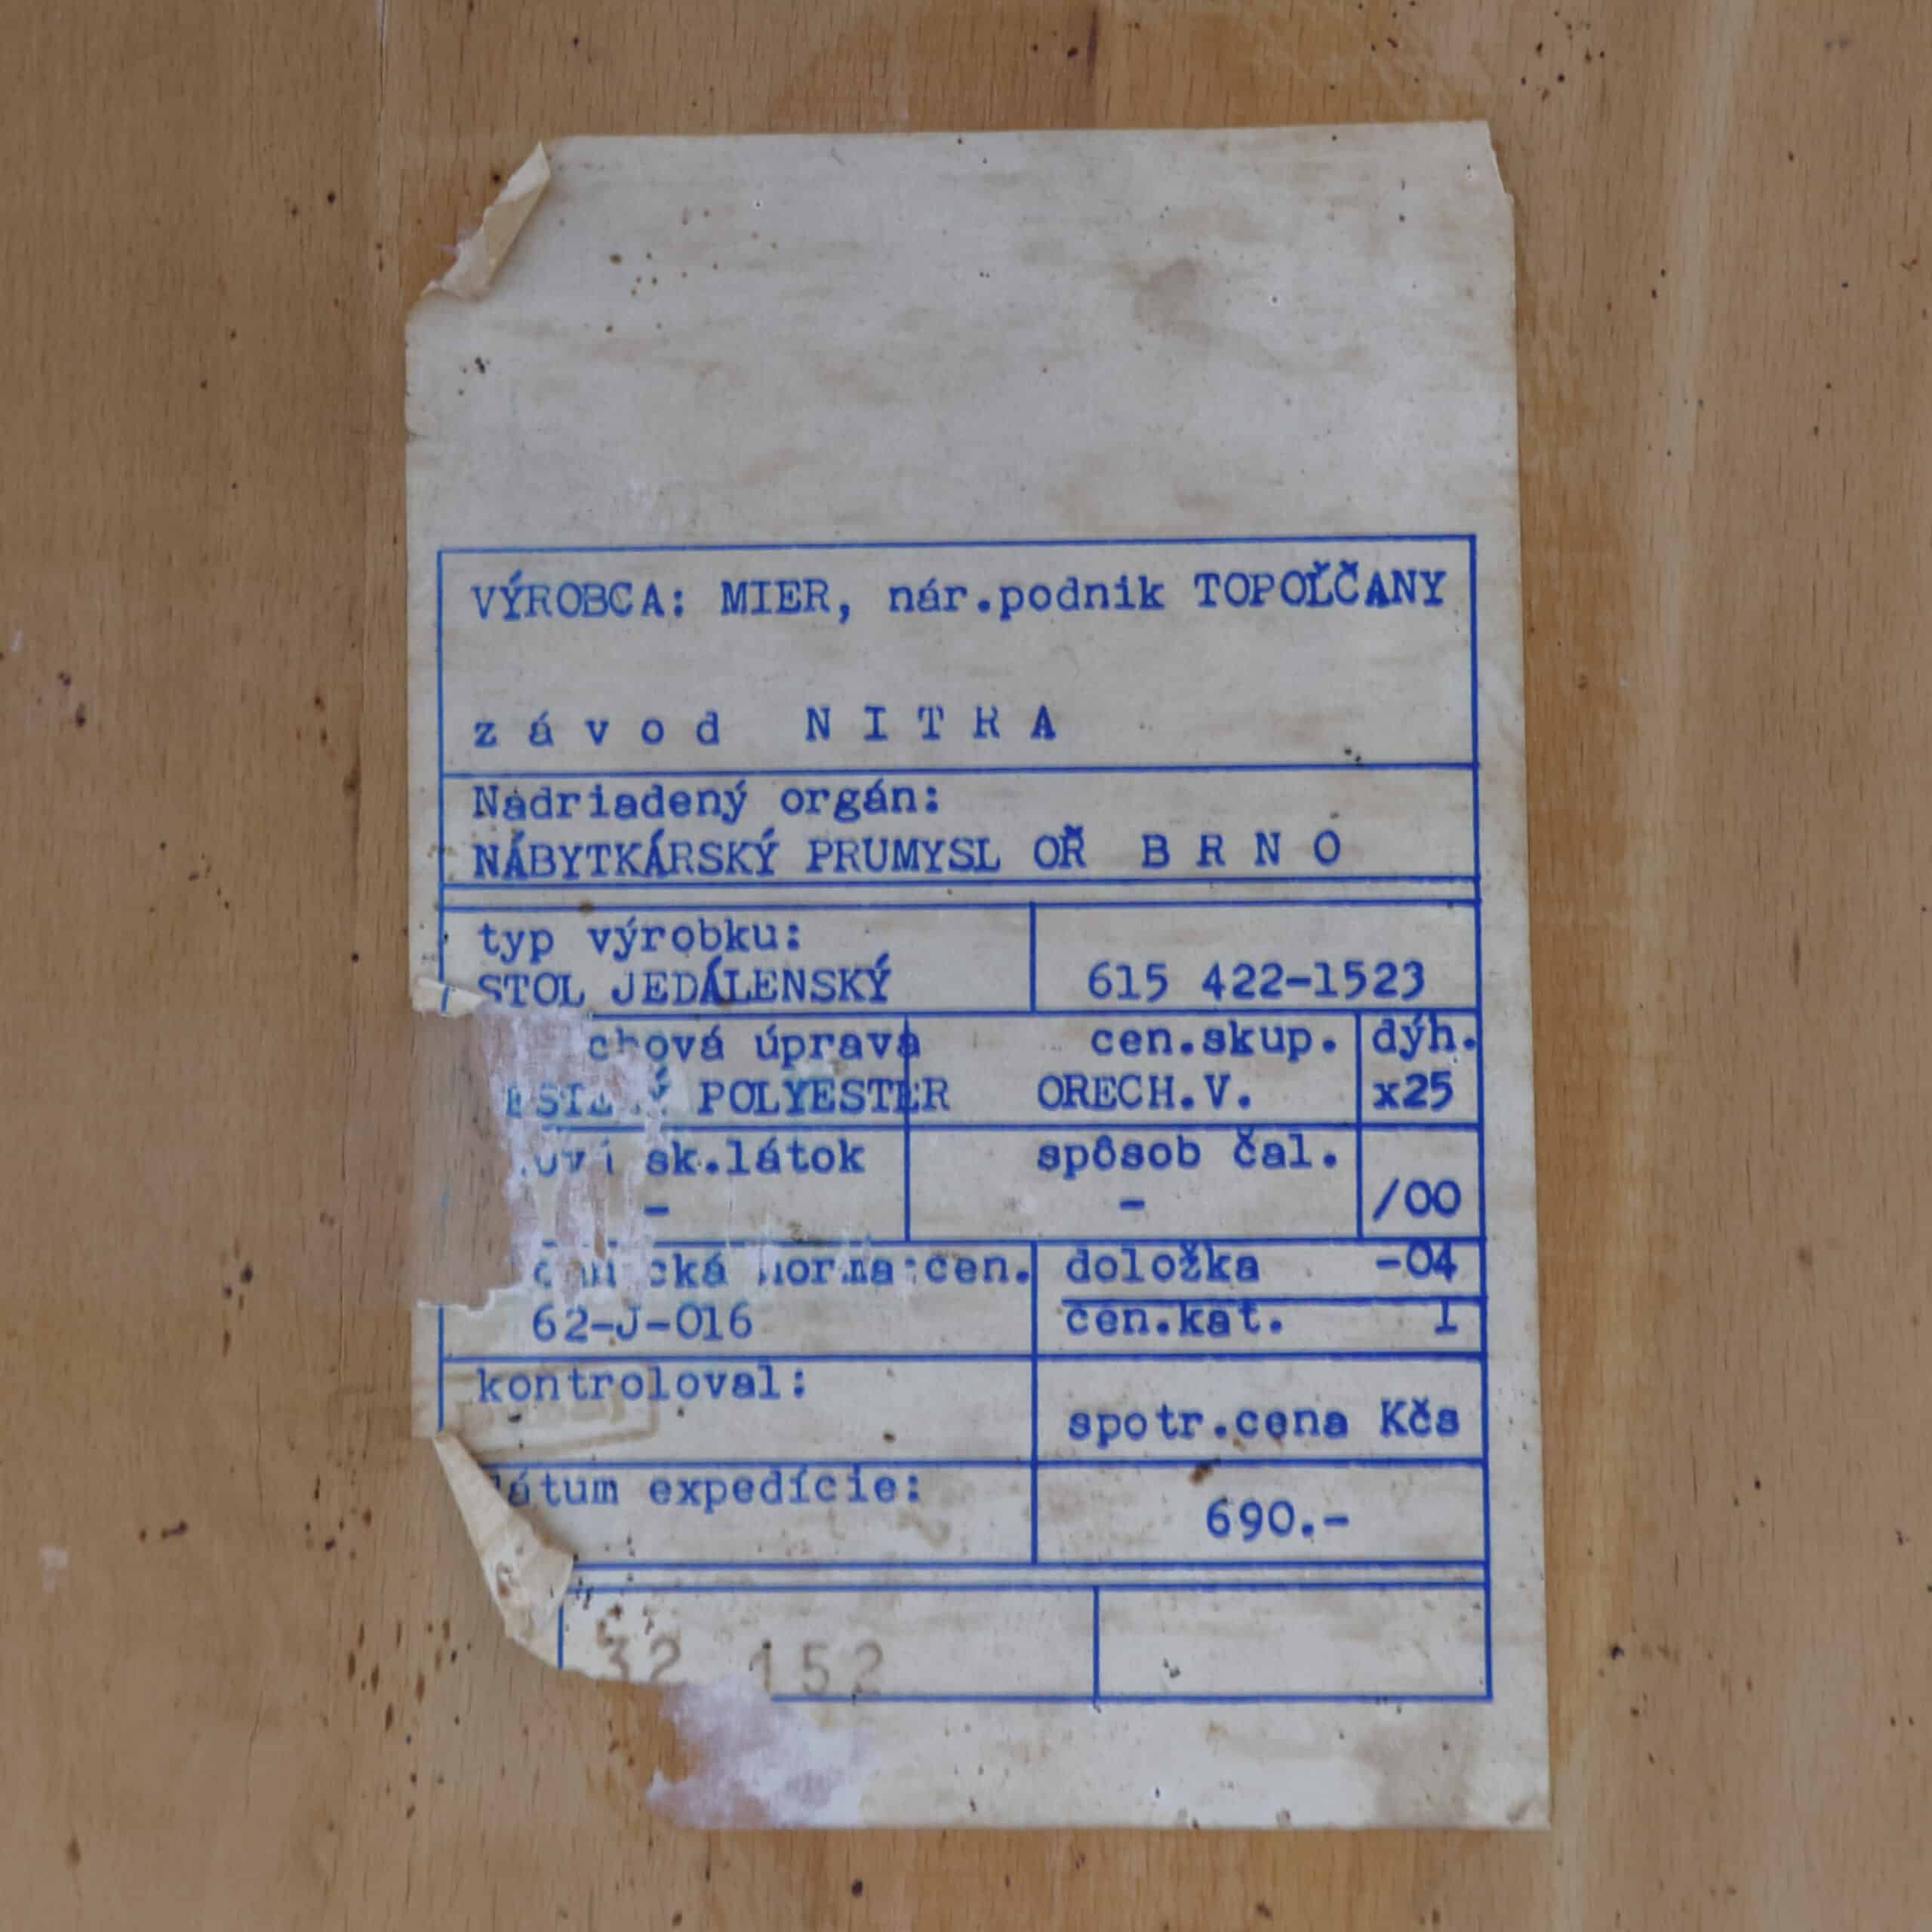 VÝROBCA: MIER, nár.podnik TOPOĽČANY
závod NITRA
Nadriadený orgán:
NÁBYTKÁRSKÝ PRUMYSL OŘ BRNO
typ výrobku:
STOL JEDÁLENSKÝ 615 422-1523
úprava cen.skup. dýh.
POLYESTER ORECH.V. x25
sk.látok spôsob čal.
- - /00
norma cen. doložka -04
62-J-016 cen.kat. 1
kontroloval:
spotr.cena Kčs
expedície:
690.-
32 152